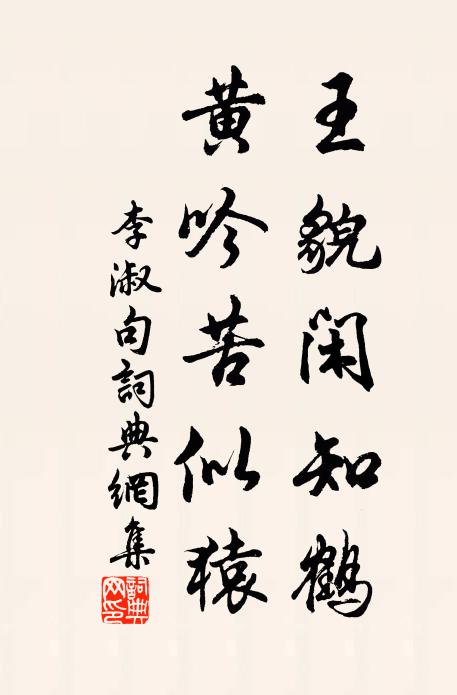 王貌閑知鶴
黄吟苦似猿
李淑句詞典網集
詞典网印